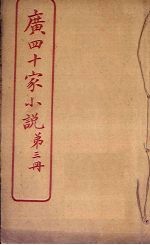 廣四十家小說第三冊